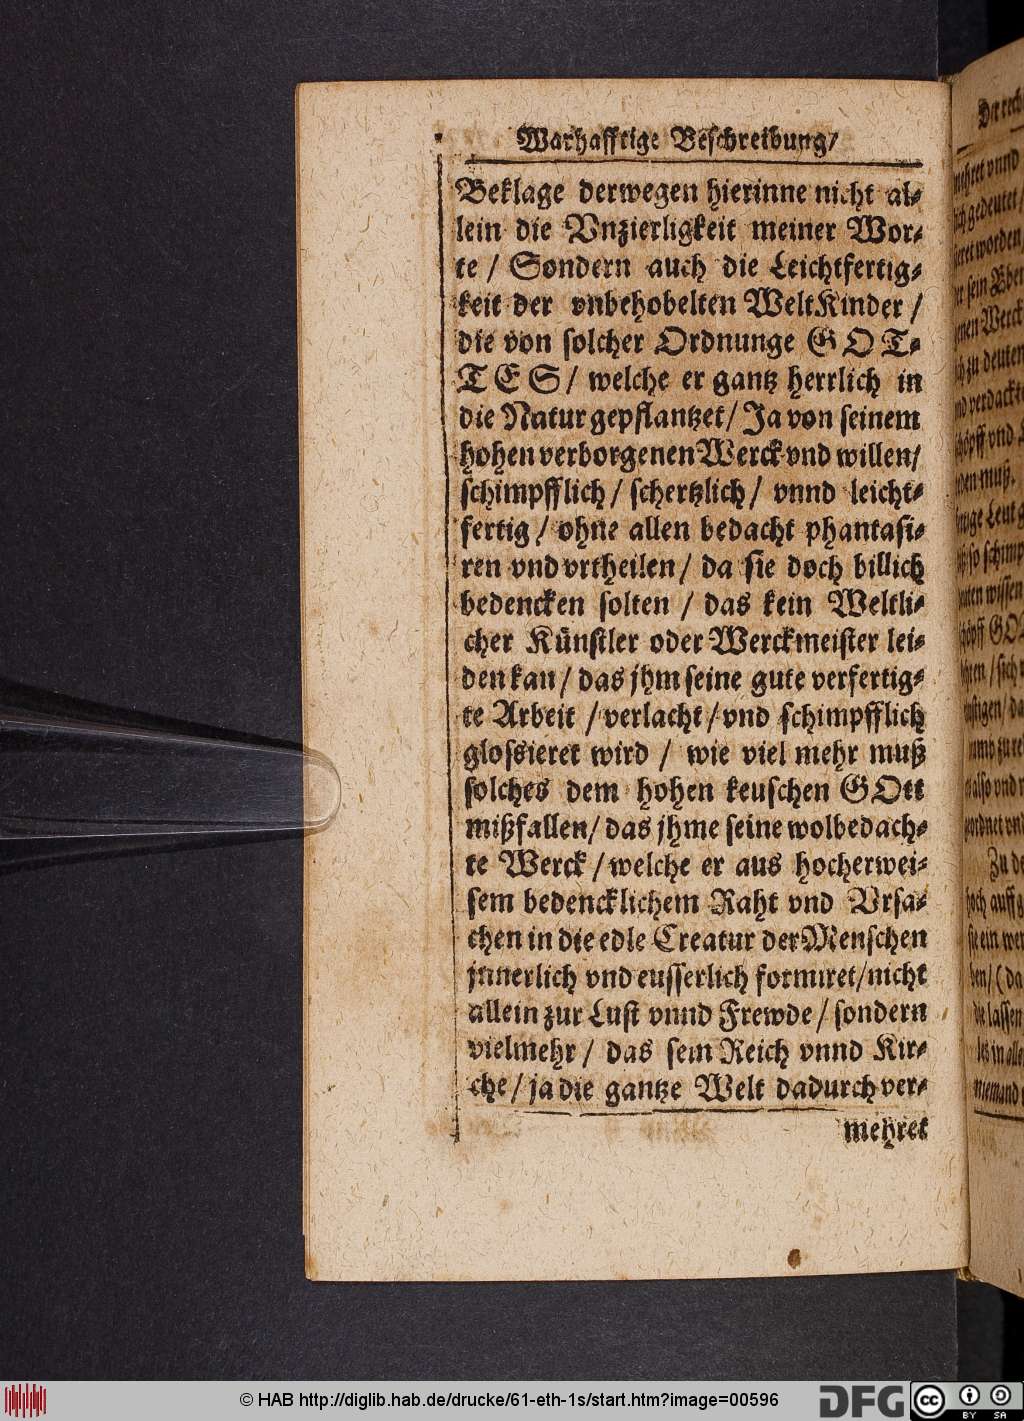 Warhafftige Beschreibung/
Beklage derwegen hierinne nicht al-
lein die Vnzierligkeit meiner Wor-
te / Sondern auch die Leichtfertig-
keit der vnbehobelten WeltKinder /
die von solcher Ordnunge GOT-
TES / welche er gantz herrlich in
die Natur gepflantzet / Ja von seinem
hohen verborgenen Werck vnd willen /
schimpfflich / schertzlich / vnnd leicht-
fertig / ohne allen bedacht phantasi-
ren vnd vrtheilen / da sie doch billich
bedencken solten / das kein Weltli-
cher Künstler oder Werckmeister lei-
den kan / das jhm seine gute verfertig-
te Arbeit / verlacht / vnd schimpfflich
glossieret wird / wie viel mehr muß
solches dem hohen keuschen GOtt
mißfallen / das jhme seine wolbedach-
te Werck / welche er aus hocherwei-
sem bedencklichem Raht vnd Vrsa-
chen in die edle Creatur der Menschen
jnnerlich vnd eusserlich formiret / nicht
allein zur Lust vnnd Frewde / sondern
vielmehr / das sein Reich vnnd Kir-
che / ja die gantze Welt dadurch ver-
mehret
© HAB http://diglib.hab.de/drucke/61-eth-1s/start.htm?image=00596
DFG
cc
BY SA